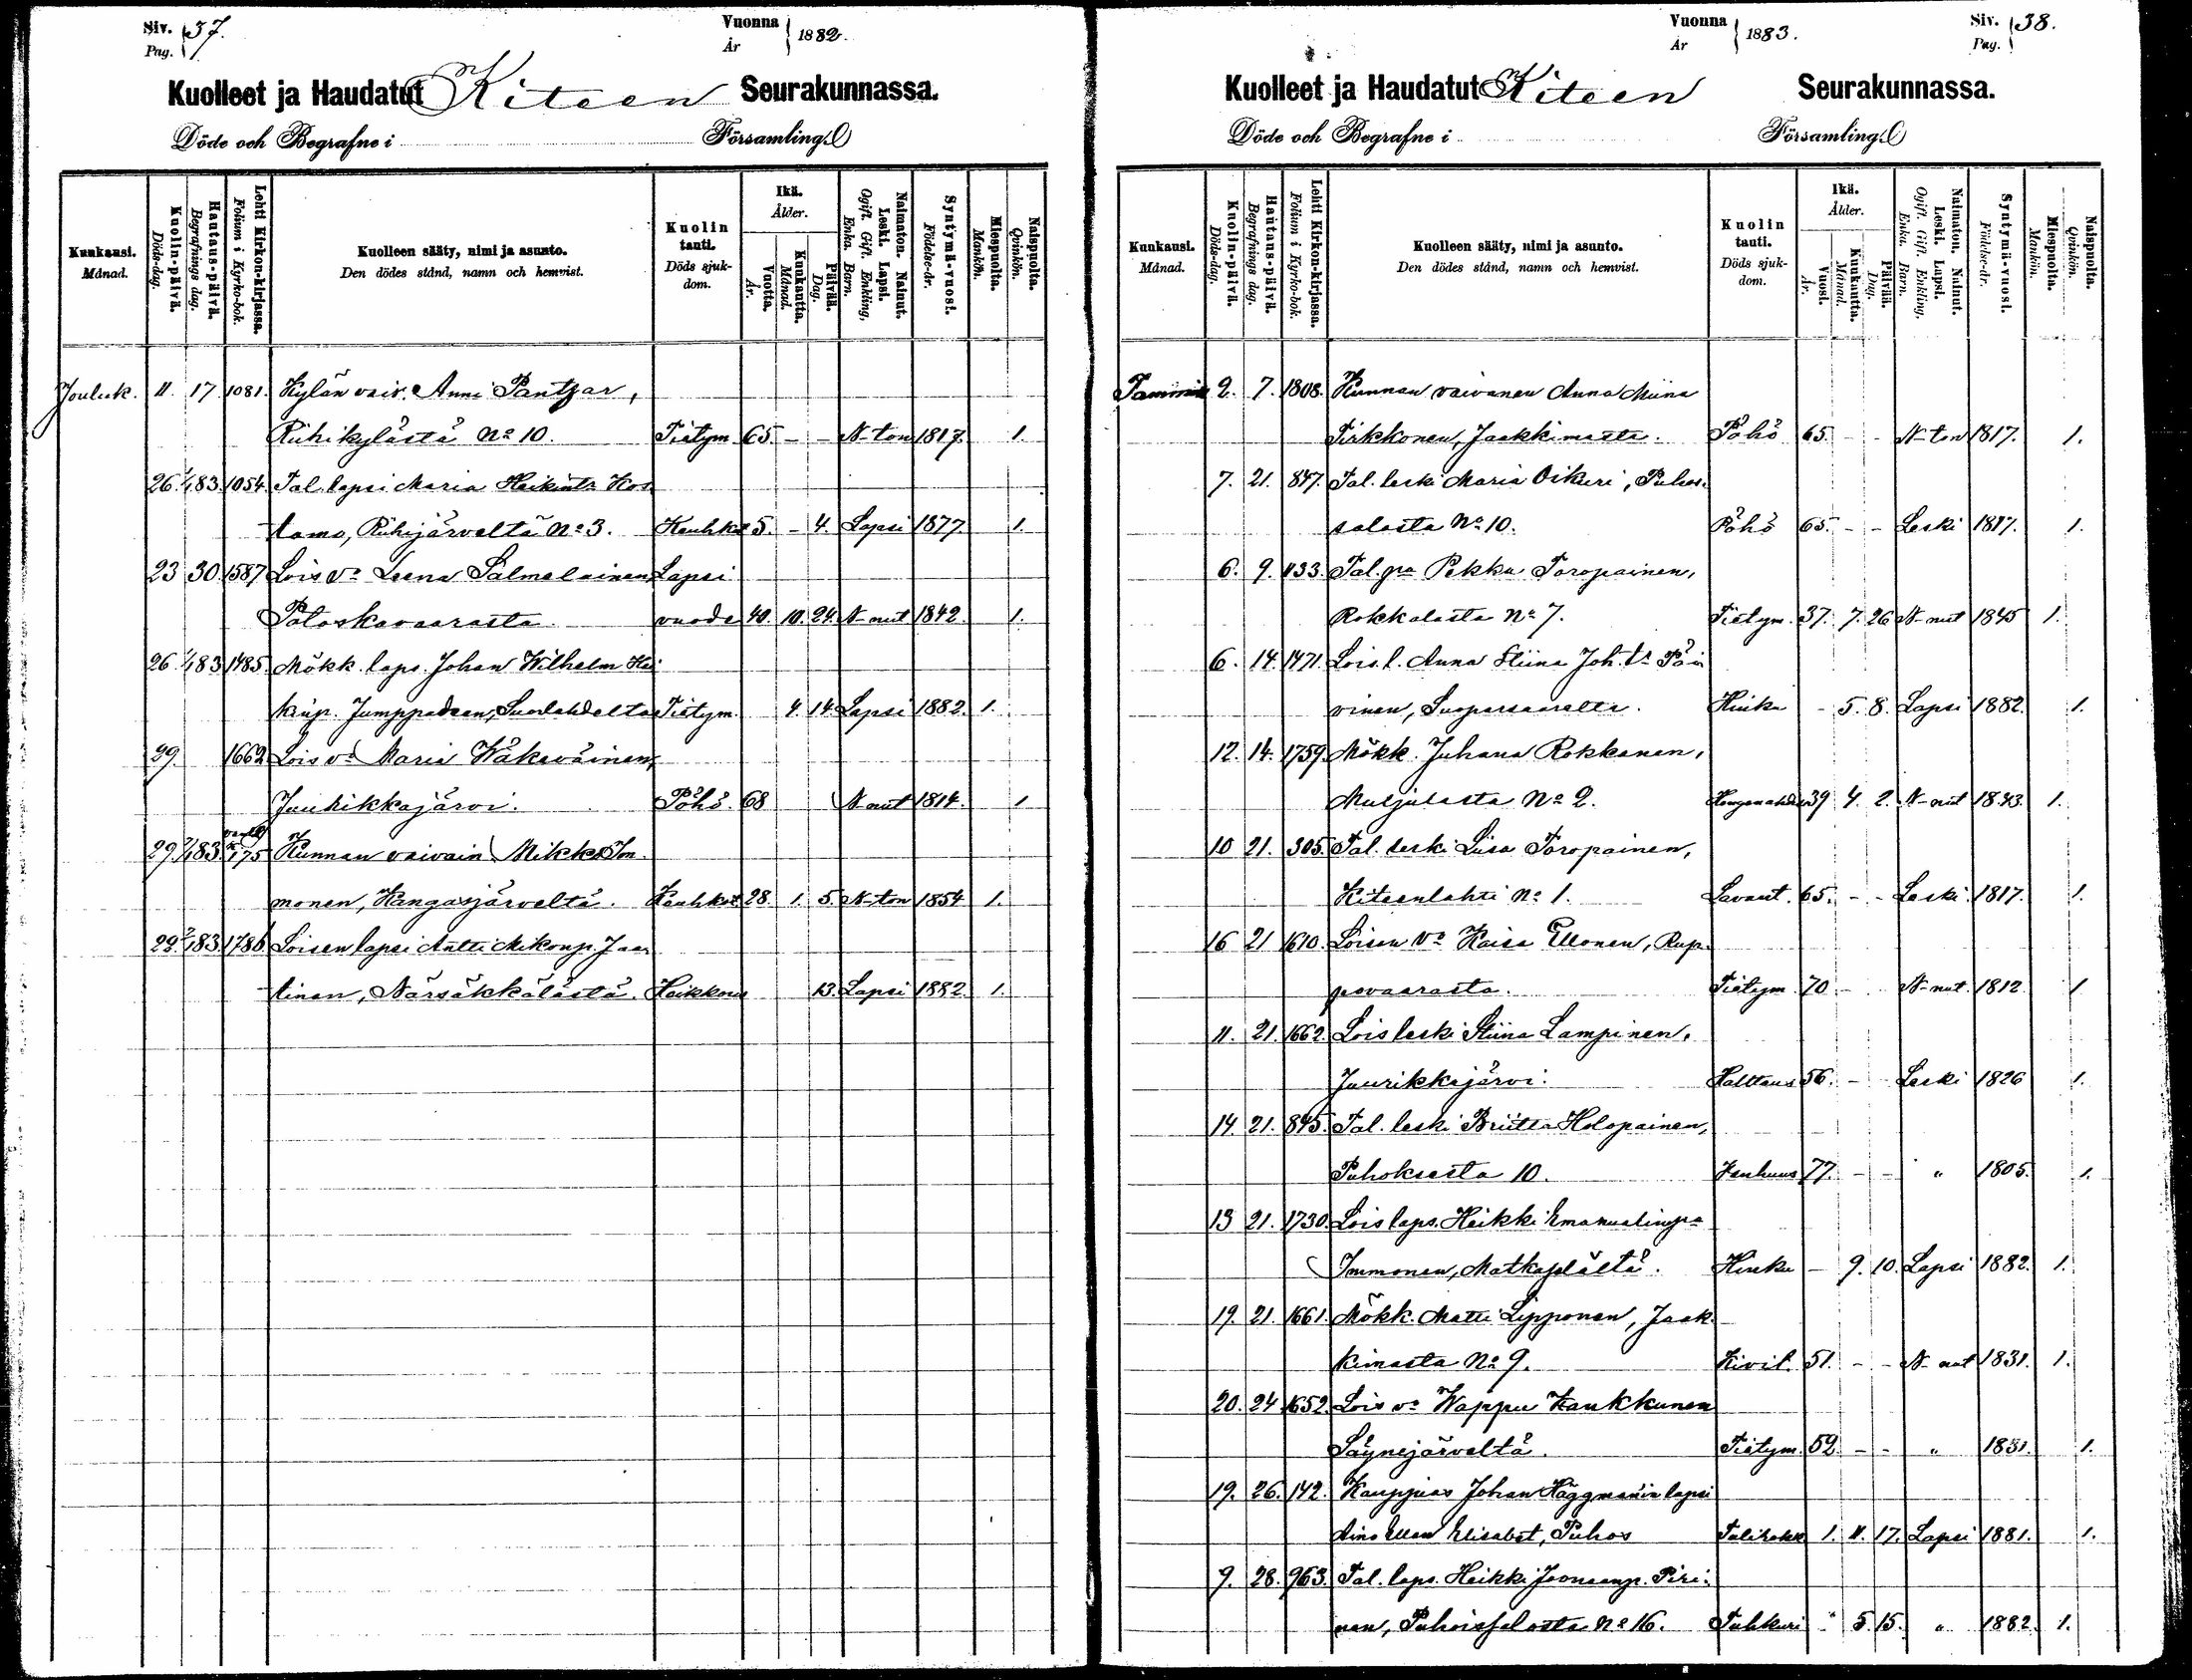 Siv. 37.
Pag.
Vuonna 1882.
År
Kuolleet ja Haudatut Kiteen Seurakunnassa.
Döde och Begrafne i Församling.
Kuukausi.
Månad.
Kuolin-päivä.
Döds-dag.
Hautaus-päivä.
Begrafnings dag.
Lehti Kirkon-kirjassa.
Folium i Kyrko-bok.
Kuolleen sääty, nimi ja asunto.
Den dödes stånd, namn och hemvist.
Kuolin
tauti.
Döds sjuk-
dom.
Ikä.
Ålder.
Vuotta.
År.
Kuukautta.
Månad.
Päivää.
Dag.
Naimaton. Nainut.
Leski. Lapsi.
Ogift. Gift. Enkling,
Enka. Barn.
Syntymä-vuosi.
Födelse-år.
Miespuolta.
Mankön.
Naispuolta.
Qvinkön.
Jouluk. 11. 17. 1081. Kylän vaiv. Anni Pantzar,
Riihikylästä No 10. Tistym. 65. - - N-ton 1817. 1.
26. 1/1 83. 1054. Tal. lapsi Maria Heikintr Kos
tamo, Riihijärveltä No 3. Keuhkot 5. - 4. Lapsi 1877. 1.
23 30. 1587 Lois va Leena Salmelainen Lapsi
Potoskavaarasta. vuode 40. 10. 24. N-nut 1842. 1.
26. 1/1 83 1485. Mökk. laps. Johan Wilhelm Hei
kinp. Jumppanen, Suorlahdelta Tistym. 4. 14. Lapsi 1882. 1.
29. 1662 Lois va Maria Wäkeväinen,
Juurikkajärvi. Pöhö. 68 N-nut 1814. 1
29. 7/1 83. 175 Kunnan vaivain Mikko Im
monen, Kangasjärveltä. Keuhkot 28. 1. 5. N-ton 1854 1.
22. 2/1 83. 1786 Loisen lapsi Antti Mikonp. Jaa
tinen, Närsäkkälästä. Heikkous 13. Lapsi 1882 1.
Siv. 38.
Pag.
Vuonna 1883.
År
Kuolleet ja Haudatut Kiteen Seurakunnassa.
Döde och Begrafne i Församling.
Kuukausi.
Månad.
Kuolin-päivä.
Döds-dag.
Hautaus-päivä.
Begrafnings dag.
Lehti Kirkon-kirjassa.
Folium i Kyrko-bok.
Kuolleen sääty, nimi ja asunto.
Den dödes stånd, namn och hemvist.
Kuolin
tauti.
Döds sjuk-
dom.
Ikä.
Ålder.
Vuosi.
År.
Kuukautta.
Månad.
Päivää.
Dag.
Naimaton. Nainut.
Leski. Lapsi.
Ogift. Gift. Enkling,
Enka. Barn.
Syntymä-vuosi.
Födelse-år.
Miespuolta.
Mankön.
Naispuolta.
Qvinkön.
Tammik 2. 7. 1808. Kunnan vaivanen Anna Miina
Tirkkonen, Jaakkimasta. Pöhö 65. - - N-ton 1817. 1.
7. 21. 847. Tal. leski Maria Oikuri, Puhos
salosta No 10. Pöhö 65. - - Leski 1817. 1.
6. 9. 1133. Tal. pa Pekka Toropainen,
Rokkalasta No 7. Tistym. 37. 7. 26 N-nut 1845 1.
6. 14. 1471. Lois. l. Anna Stiina Joh. tr Päi
vinen, Suoparsaarelta. Hinku - 5. 8. Lapsi 1882. 1.
12. 14. 1759. Mökk. Juhana Rokkanen,
Muljulasta No 2. 39 4. 2. N-nut 1843. 1.
10 21. 305. Tal. leski Liisa Toropainen,
Kiteenlahti No 1. Lavant. 65. - - Leski 1817. 1.
16 21 1610. Loisen va Kaisa Ellonen, Rup
povaarasta. Tistym. 70 - N-nut. 1812 1
11. 21. 1662. Lois leski Stiina Lampinen,
Juurikkajärvi. Halttaus 56. - Leski 1826 1.
14. 21. 845. Tal. leski Briitta Holopainen,
Puhoksesta 10. Vanhuus 77. - - " 1805. 1.
13 21. 1730. Lois laps. Heikki Emanuelinpa
Immonen, Matkaselältä. Hinku - 9. 10. Lapsi 1882. 1.
19. 21. 1661. Mökk. Matti Lipponen, Jaak
kimasta No 9. Kivit. 51. - - N-nut 1831. 1.
20. 24 1652. Lois va Wappu Kaukkunen
Säynejärveltä. Tistym. 52. - - " 1831. 1.
19. 26. 142. Kauppias Johan Häggmanin lapsi
Aino Ellen Elisabet, Puhos Tulirokk 1. 11. 17. Lapsi 1881. 1.
9. 28. 963. Tal. laps. Heikki Joonaanp. Piri
nen, Puhossalosta No 16. Tuhkuri " 5 15. " 1882. 1.